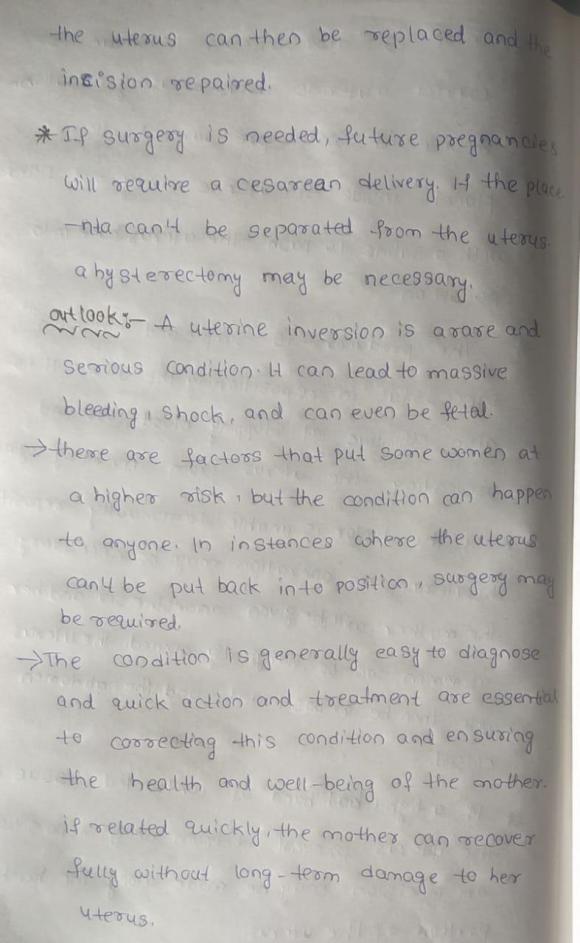 the uterus can then be replaced and the
incision repaired.
* If surgery is needed, future pregnancies
will require a cesarean delivery. If the place
-nta can't be separated from the uterus.
a hysterectomy may be necessary.
outlook:- A uterine inversion is a rare and
serious condition. It can lead to massive
bleeding, shock, and can even be fetal.
→there are factors that put some women at
a higher risk, but the condition can happen
to anyone. In instances where the uterus
can't be put back into position, surgery may
be required.
→The condition is generally easy to diagnose
and quick action and treatment are essential
to correcting this condition and ensuring
the health and well-being of the mother.
if related quickly, the mother can recover
fully without long-term damage to her
uterus.